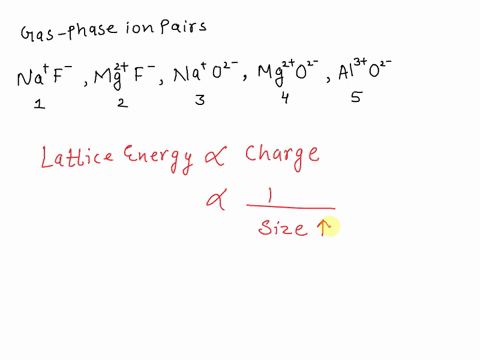 Gas-phase ion Pairs
Na⁺F⁻, Mg²⁺F⁻, Na⁺O²⁻, Mg²⁺O²⁻, Al³⁺O²⁻
1 2 3 4 5
Lattice Energy ∝ Charge
∝ 1
Size ↑